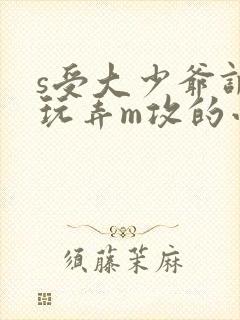 s受大少爷
玩弄m攻的
须藤茉麻